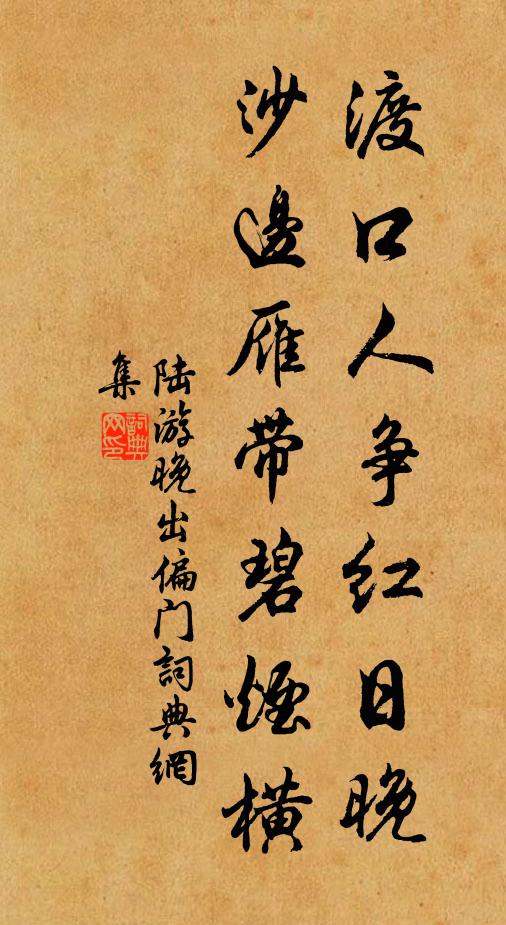 渡口人争红日晚
沙邊雁带碧煙横
陆游晚出偏门詞典網
集
詞典网印